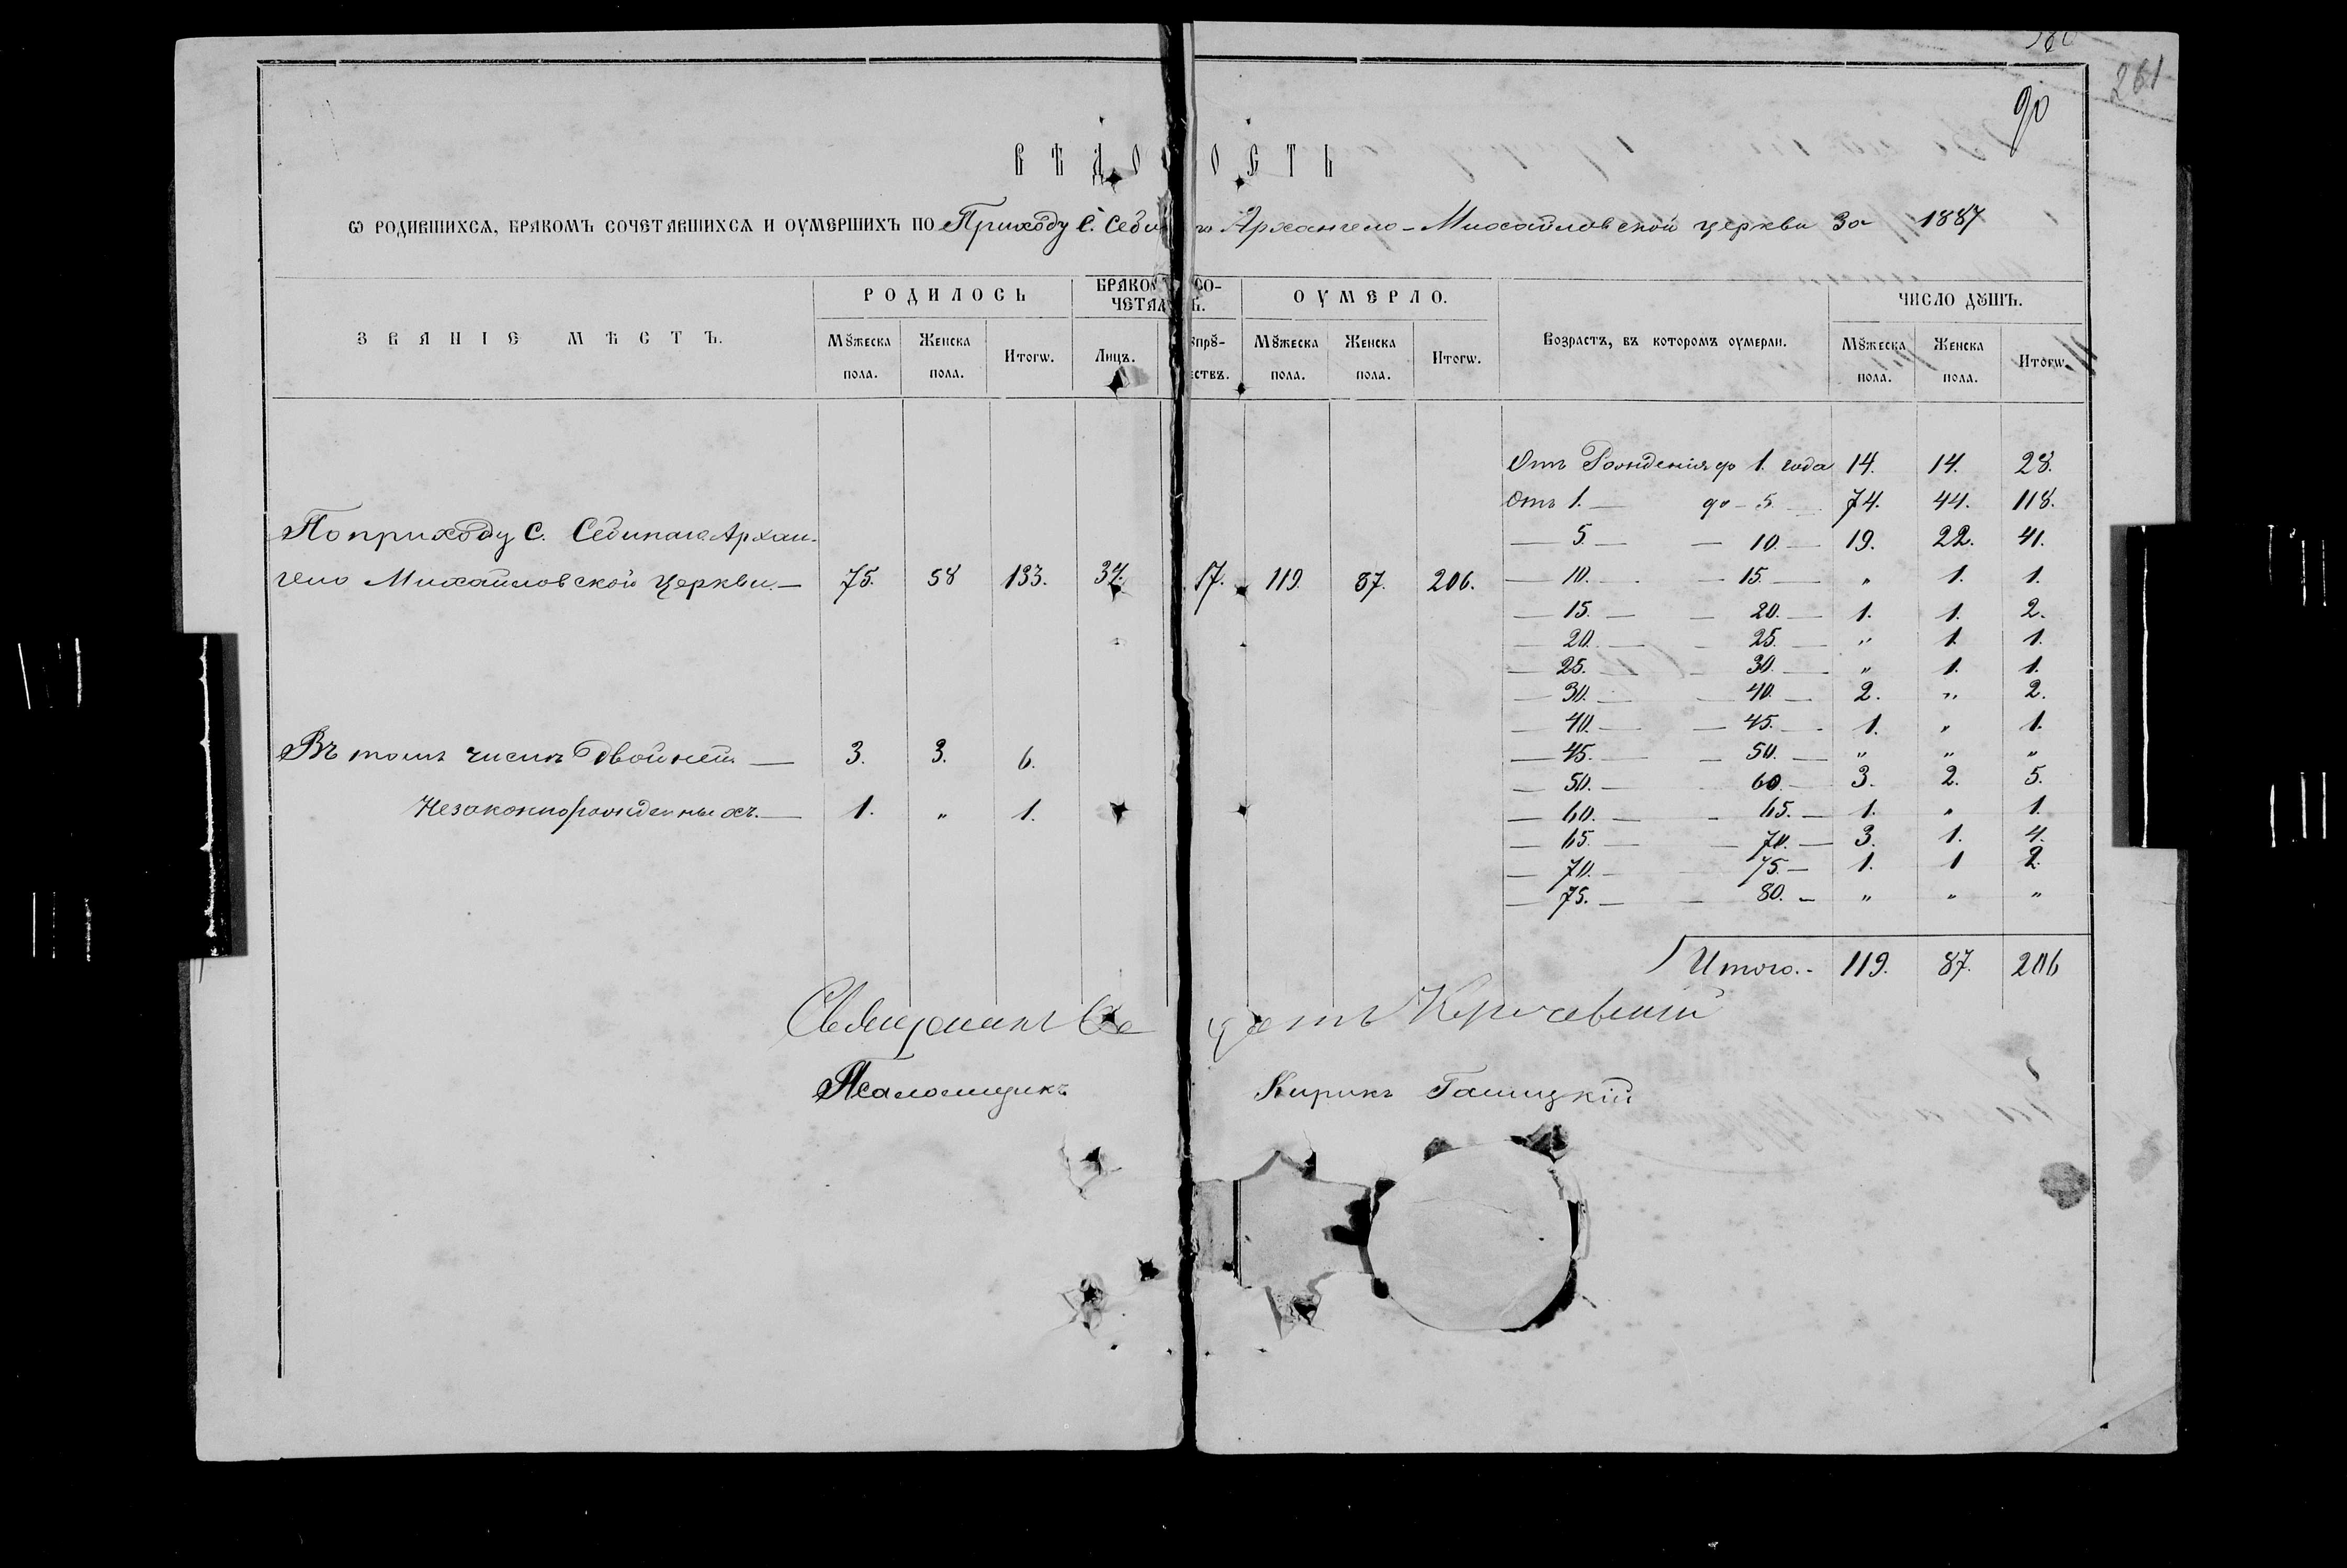 261
90
ВѢДОМОСТЬ
Ѡ РОДИВШИХСѦ, БРАКОМЪ СОЧЕТАВШИХСѦ И ОУМЕРШИХЪ ПО Приходу с. Седи го Архангело-Михайловской церкви за 1887
ЗВАНІЕ МѢСТЪ.
РОДИЛОСЬ
Мꙋжеска пола.
Женска пола.
Итогѡ.
БРАКОМЪ СО-
ЧЕТАЛ Ь.
Лицъ.
ꙋпрꙋ-
ествъ.
ОУМЕРЛО.
Мꙋжеска пола.
Женска пола.
Итогѡ.
Возрастъ, въ которомъ оумерли.
ЧИСЛО ДꙊШЪ.
Мꙋжеска пола.
Женска пола.
Итогѡ.
По приходу с. Сединаго Архан-
гело Михайловской церкви. — 75. 58 133. 34. 17. 119. 87. 206.
Въ томъ числѣ двойней — 3. 3. 6.
Незаконнорожденныхъ. — 1. „ 1.
Отъ Рожденія до 1. года 14. 14. 28.
Отъ 1. — до — 5. — 74. 44. 118.
— 5. — — 10. — 19. 22. 41.
— 10. — — 15. — „ 1. 1.
— 15. — — 20. — 1. 1. 2.
— 20. — — 25. — „ 1. 1.
— 25. — — 30. — „ 1. 1.
— 30. — — 40. — 2. „ 2.
— 40. — — 45. — 1. „ 1.
— 45. — — 50. — „ „ „
— 50. — 60. — 3. 2. 5.
— 60. — — 65. — 1. „ 1.
— 65. — — 70. — 3. 1. 4.
— 70. — 75. — 1. 1 2.
— 75. — — 80. — „ „ „
Итого. - 119. 87. 206
Священникъ
Псаломщикъ Кирикъ Галицкій